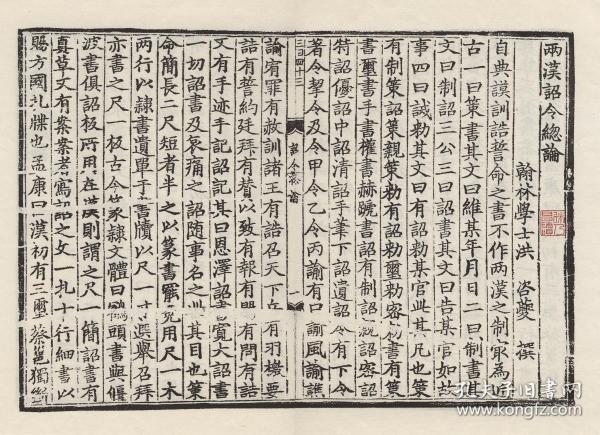 兩漢詔令總論
翰林學士洪 咨夔 撰
自典謨訓誥誓命之書不作兩漢之制㝡為近
古一曰策書其文曰維某年月日二曰制書其
文曰制詔三公三曰詔書其文曰告某官如故
事四曰誡勑其文曰有詔勑某官此其凡也策
有制策詔策親策勑有詔勑璽勑密勑書有策
書璽書手書權書赫蹏書詔有制詔親詔密詔
特詔優詔中詔清詔手筆下詔遺詔令有下令
著令挈令及令甲令乙令丙諭有口諭風諭譙
諭宥罪有赦訓諸王有誥召天下兵有羽檄要
誥有誓約廷拜有賛致有報有問有誥
文有手迹手記詔記其曰恩澤詔書寬大詔書
一切詔書及哀痛之詔隨事名之此其目也策
命簡長二尺短者半之以篆書罷免用尺一木
兩行以隸書遺單于書牘以尺一選舉召拜
亦書之尺一板古今篆隸文體曰鶴頭書與偃
波書俱詔板所用在漢則謂之尺一簡詔書有
真草又有案案者寫詔之文一札十行細書以
賜方國札牒也孟康曰漢初有三璽蔡邕獨斷
三百四十三
一
孔夫子旧书网
www.kongfz.com